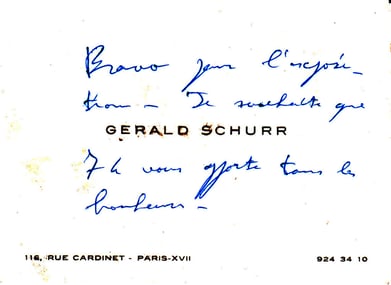 Bravo pour l'exposi-
tion - Je souhaite que
GERALD SCHURR
74 vous apporte tous les
bonheurs -
116, RUE CARDINET - PARIS-XVII
924 34 10